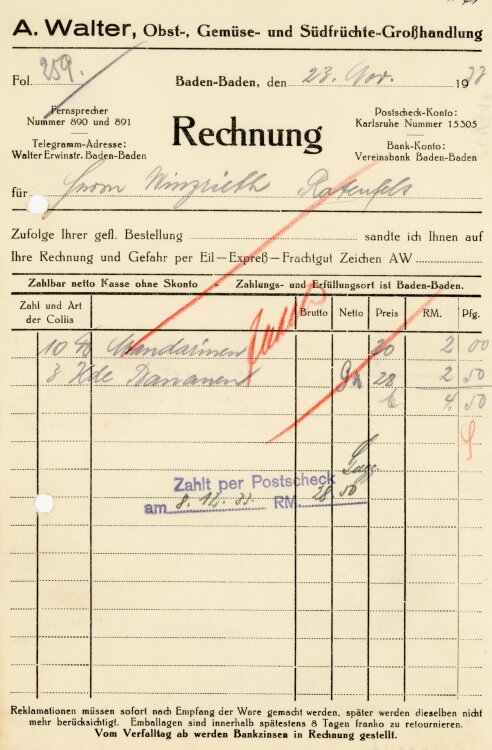 A. Walter, Obst-, Gemüse- und Südfrüchte-Großhandlung
Fol. 259.
Baden-Baden, den 23. Nov. 1933
Fernsprecher
Nummer 890 und 891
Telegramm-Adresse:
Walter Erwinstr. Baden-Baden
Rechnung
Postscheck-Konto:
Karlsruhe Nummer 15305
Bank-Konto:
Vereinsbank Baden-Baden
für Herrn Rotenfels
Zufolge Ihrer gefl. Bestellung sandte ich Ihnen auf
Ihre Rechnung und Gefahr per Eil—Expreß—Frachtgut Zeichen AW
Zahlbar netto Kasse ohne Skonto - Zahlungs- und Erfüllungsort ist Baden-Baden.
Zahl und Art der Collis Brutto Netto Preis RM. Pfg.
10 Mandarinen 20 2 00
3 Bananen 28 2 50
4 50
Zahlt per Postscheck
am 8. 12. 33. RM 28 50
Reklamationen müssen sofort nach Empfang der Ware gemacht werden, später werden dieselben nicht
mehr berücksichtigt. Emballagen sind innerhalb spätestens 8 Tagen franko zu retournieren.
Vom Verfalltag ab werden Bankzinsen in Rechnung gestellt.